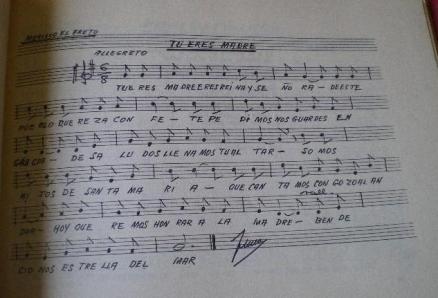 TU ERES MADRE
ALLEGRETO
6/8
TUE RES MADREERESREINAY SE ÑO RA - DEESTE
PUEBLO QUE RE ZA CON FE - TE PE DI MOS NOS GUARDES EN
DE SA LU DOS LLE NAMOS TUAL TAR - SO MOS
HI JOS DE SAN TA MA RI A - QUE CAN TA MOS CON GOZOAL AN
DAR - HOY QUE RE MOS HON RAR A LA MA DRE - BEN DE
CID NOS ES TRE LLA DEL MAR